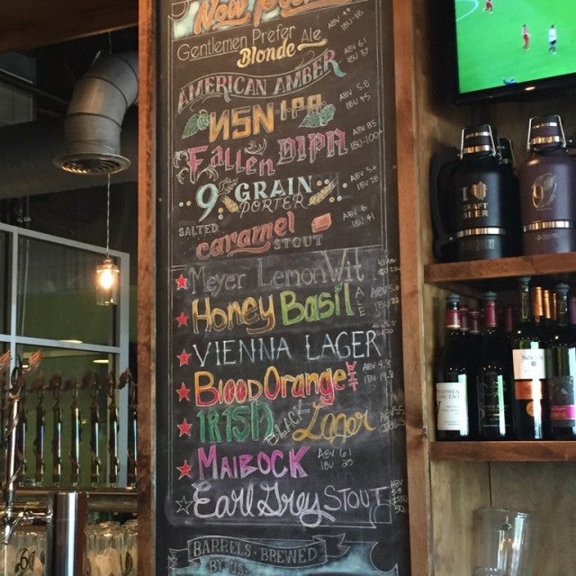 Now Pouring
Gentlemen Prefer
Blonde Ale
ABV 4.9
IBU-18
AMERICAN AMBER
ABV 6.1
IBU 27
NSN IPA
ABV 5.8
IBU 45
Fallen DIPA
ABV 8.5
IBU-100+
9 GRAIN
PORTER
ABV 5.6
IBU 28
SALTED
caramel
STOUT
ABV 6
IBU 41
Meyer Lemon Wit
Honey Basil ALE
VIENNA LAGER
Blood Orange WIT
ABV 4.8
IRISH BLACK Lager
MAIBOCK
ABV 6.1
IBU 25
Earl Grey STOUT
BARRELS • BREWED
BY US:
I
CRAFT
BEER
9